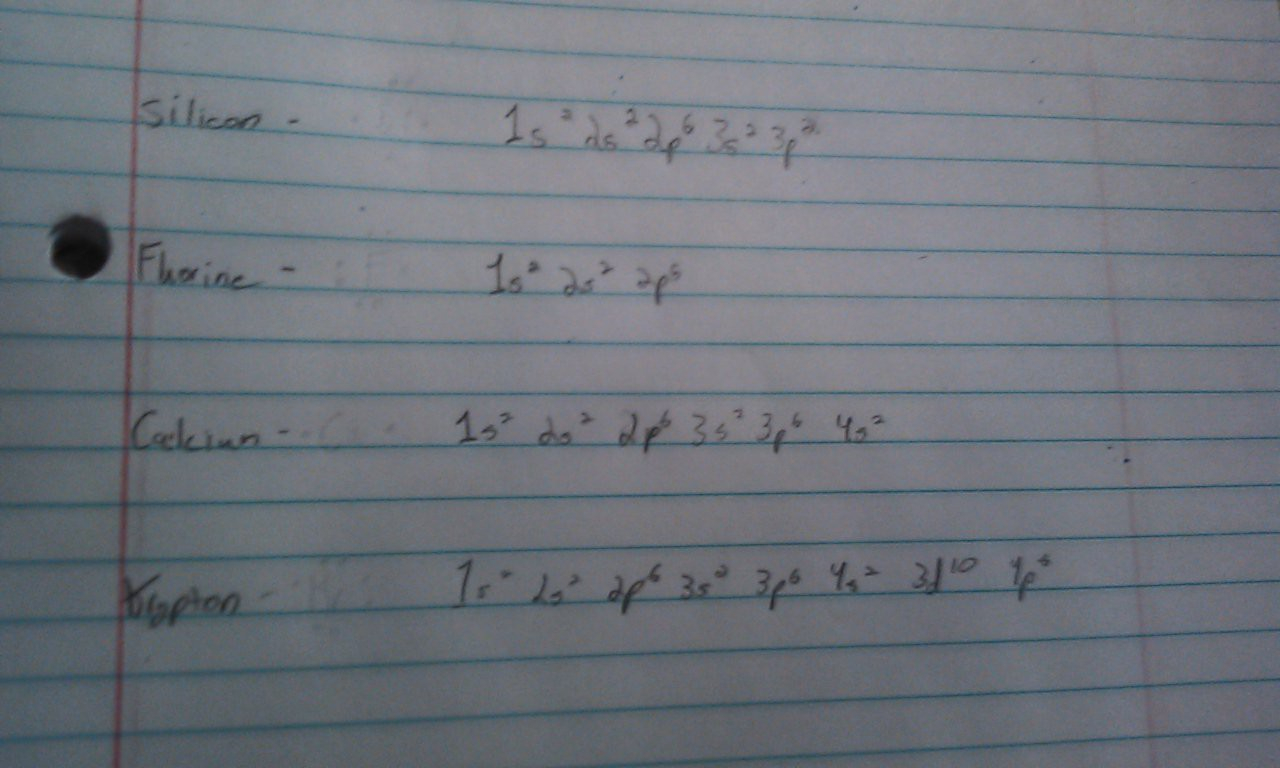 Silicon - 1s² 2s² 2p⁶ 3s² 3p²
Fluorine - 1s² 2s² 2p⁵
Calcium - 1s² 2s² 2p⁶ 3s² 3p⁶ 4s²
Krypton - 1s² 2s² 2p⁶ 3s² 3p⁶ 4s² 3d¹⁰ 4p⁶